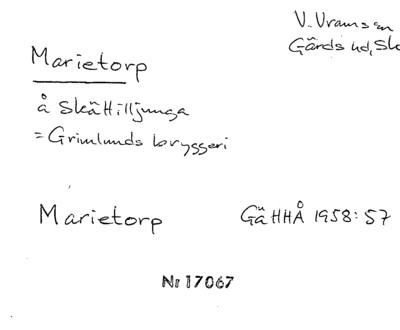 V. Vrams sn
Gärds hd, Sk
Marietorp
å Skättilljunga
= Grimlunds bryggeri
Marietorp GäHHÅ 1958:57
Nr 17067